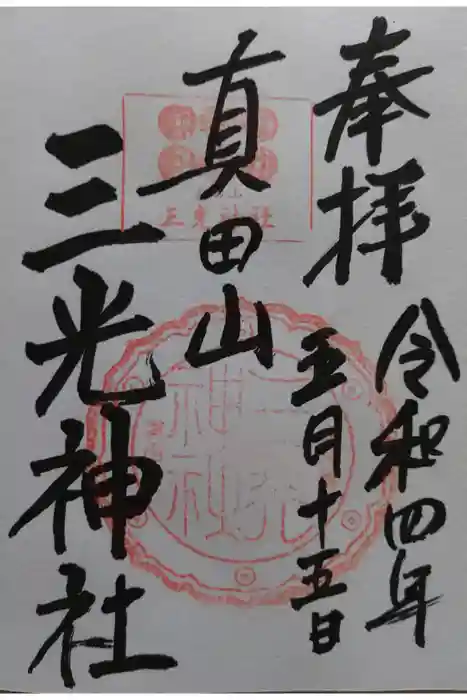 奉拝
令和四年
五月十五日
真田山
三光神社
三光神社
三光神社